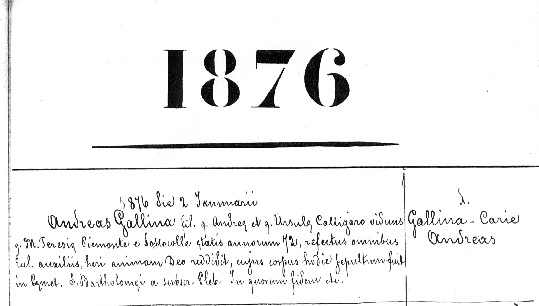 1876
1876 Die 2 Januarii
Andreas Gallina fil. q. Andreę et q. Ursulę Calligaro viduus
q. M. Teresię Piemonte e Sottocolle ętatis annorum 72, refectus omnibus
rel. auxiliis, heri animam Deo reddidit, cujus corpus hodie sepultum fuit
in Cęmet. S. Bartholomęi a subscr. Pleb. In quorum fidem etc.
1.
Gallina - Carie
Andreas